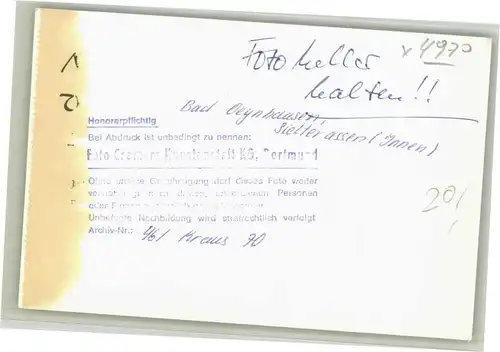 x 4970
Foto heller
halten!!
Bad Oeynhausen,
Sielterassen (Innen)
Honorarpflichtig
Bei Abdruck ist unbedingt zu nennen:
Foto Cramers Kunstanstalt KG, Dortmund
Ohne unsere Genehmigung darf dieses Foto weder
vervielfältigt noch dritten Personen
oder Firmen
Unbefugte Nachbildung wird strafrechtlich verfolgt
Archiv-Nr.: 461 Kraus 70
20,